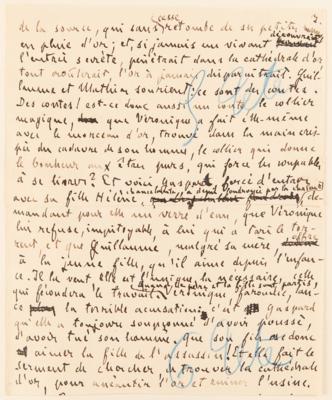 2.
cesse
de la source, qui sans retombe de sa petite
en pluie d'or; et si jamais un vivant découvrait
l'entrée secrète, pénétrait dans la cathédrale d'or
tout croulerait, l'or à jamais disparaîtrait. Guil-
laume et Mathieu sourient: ce sont des contes.
Des contes! est-ce donc aussi un conte, le collier
magique, que Véronique a fait elle-même
avec le morceau d'or, trouvé dans la main cris-
pée du cadavre de son homme, le collier qui donne
le bonheur aux êtres purs, qui force les coupables
à se livrer? Et voici Gaspard forcé d'entrer
avec sa fille Hélène, de-
mandant pour elle un verre d'eau, que Véronique
lui refuse, impitoyable à lui qui a tari le tor-
rent et que Guillaume, malgré sa mère offre
à la jeune fille, qu'il aime depuis l'enfan-
ce. Il la veut, elle est l'unique, la nécessaire, celle
qui fécondera le travail. Quand le père et la fille sont partis,
Véronique, farouche, lan-
ce la terrible accusation: c'est Gaspard
qu'elle a toujours soupçonné d'avoir poussé,
d'avoir tué son homme, que son fils ose donc
aimer la fille de l'assassin! Et elle fait le
serment de chercher, de trouver la cathédrale
d'or, pour anéantir l'or et ruiner l'usine.